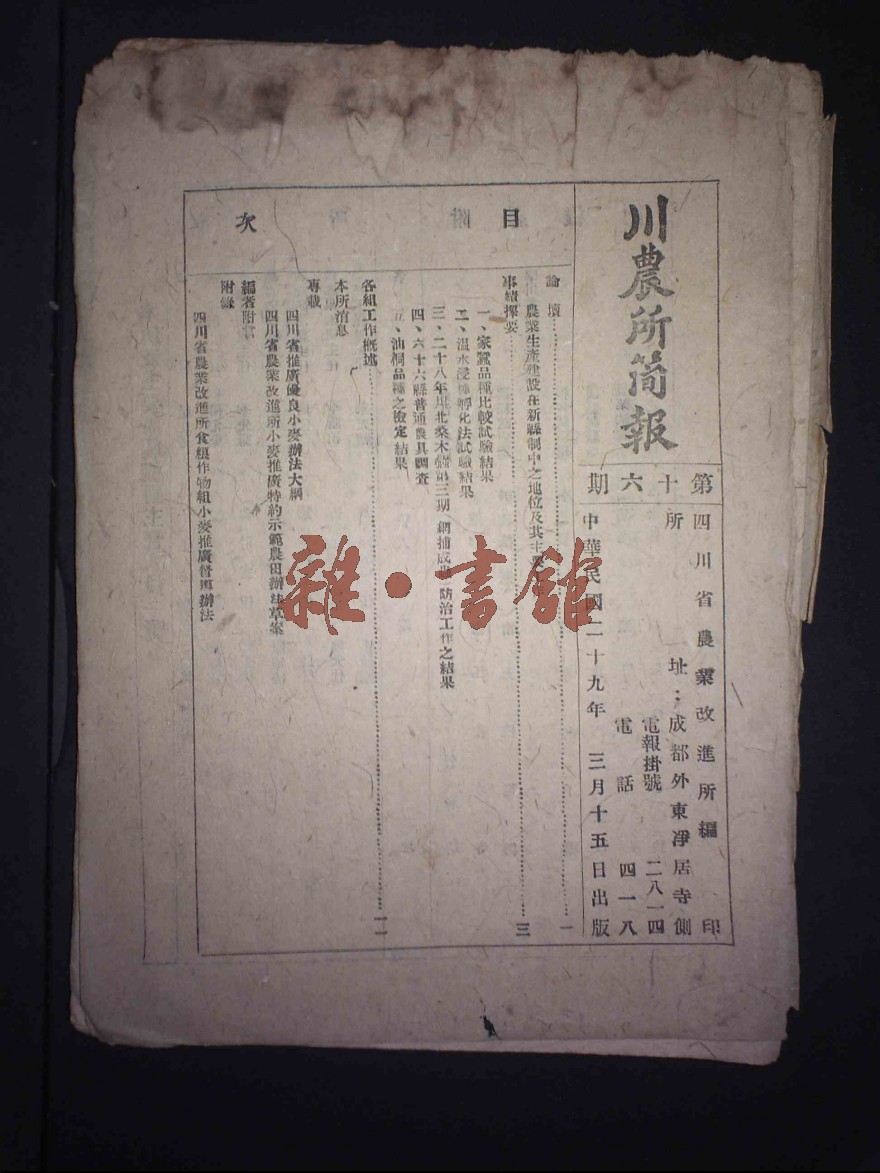 川農所简報
第十六期
四川省農業改進所編印
所址：成都外東淨居寺側
電報掛號 二八一四
電話 四一八
中華民國二十九年 三月十五日出版
目次
論壇
農業生產建設在新縣制中之地位及其主要 一
事績擇要 三
一、家蠶品種比較試驗結果
二、溫水浸種孵化法試驗結果
三、二十八年川北桑木 第三期 網捕成 防治工作之結果
四、六十六縣普通農具調查
五、油桐品種之檢定結果
各組工作概述 一一
本所消息
專載
四川省推廣優良小麥辦法大綱
四川省農業改進所小麥推廣特約示範農田辦法草案
編者附言
附錄
四川省農業改進所食糧作物組小麥推廣督導辦法
雜·書館